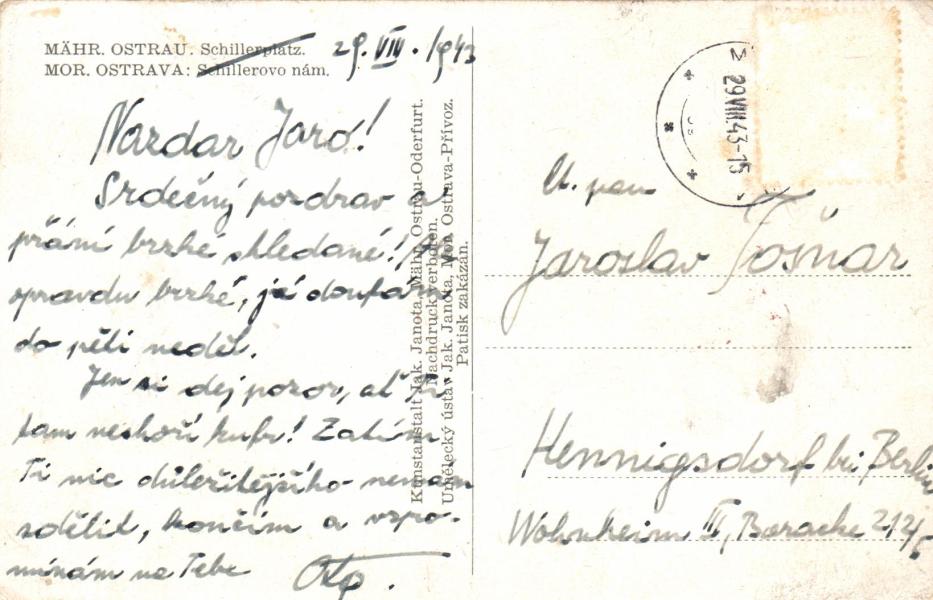 MÄHR. OSTRAU. Schillerplatz.
MOR. OSTRAVA: Schillerovo nám.
29. VIII. 1943
Nazdar Jaro!
Srdečný pozdrav a
přání brzké shledané!
opravdu brzké, já doufám
do pěti neděl.
Jen si dej pozor, ať Ti
tam neshoří kufr! Zatím
Ti nic důležitějšího nemám
sdělit, končím a vzpo-
mínám na Tebe
Ota.
Kunstanstalt Jak. Janota, Mähr. Ostrau-Oderfurt.
Nachdruck verboten.
Umělecký ústav Jak. Janota, Mor. Ostrava-Přívoz.
Patisk zakázán.
29.VIII.43-15
Ct. pan
Jaroslav Fošnar
Hennigsdorf bei Berlin
Wohnheim III, Baracke 212/